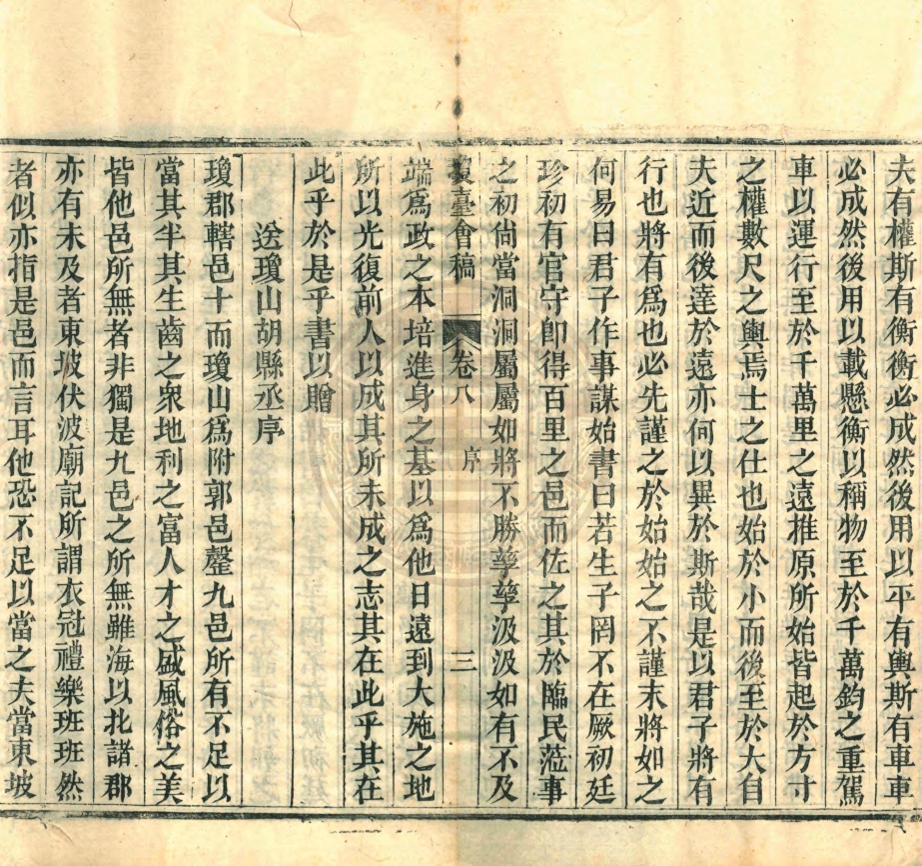 夫有權斯有衡衡必成然後用以平有輿斯有車車
必成然後用以載懸衡以稱物至於千萬鈞之重駕
車以運行至於千萬里之遠推原所始皆起於方寸
之權數尺之輿焉士之仕也始於小而後至於大自
夫近而後達於遠亦何以異於斯哉是以君子將有
行也將有爲也必先謹之於始始之不謹末將如之
何易曰君子作事謀始書曰若生子罔不在厥初廷
珍初有官守卽得百里之邑而佐之其於臨民蒞事
之初尙當洞洞屬屬如將不勝孳孳汲汲如有不及
瓊臺會稿 卷八 序 三
端爲政之本培進身之基以爲他日遠到大施之地
所以光復前人以成其所未成之志其在此乎其在
此乎於是乎書以贈
送瓊山胡縣丞序
瓊郡轄邑十而瓊山爲附郭邑罄九邑所有不足以
當其半其生齒之衆地利之富人才之盛風俗之美
皆他邑所無者非獨是九邑之所無雖海以北諸郡
亦有未及者東坡伏波廟記所謂衣冠禮樂班班然
者似亦指是邑而言耳他恐不足以當之夫當東坡